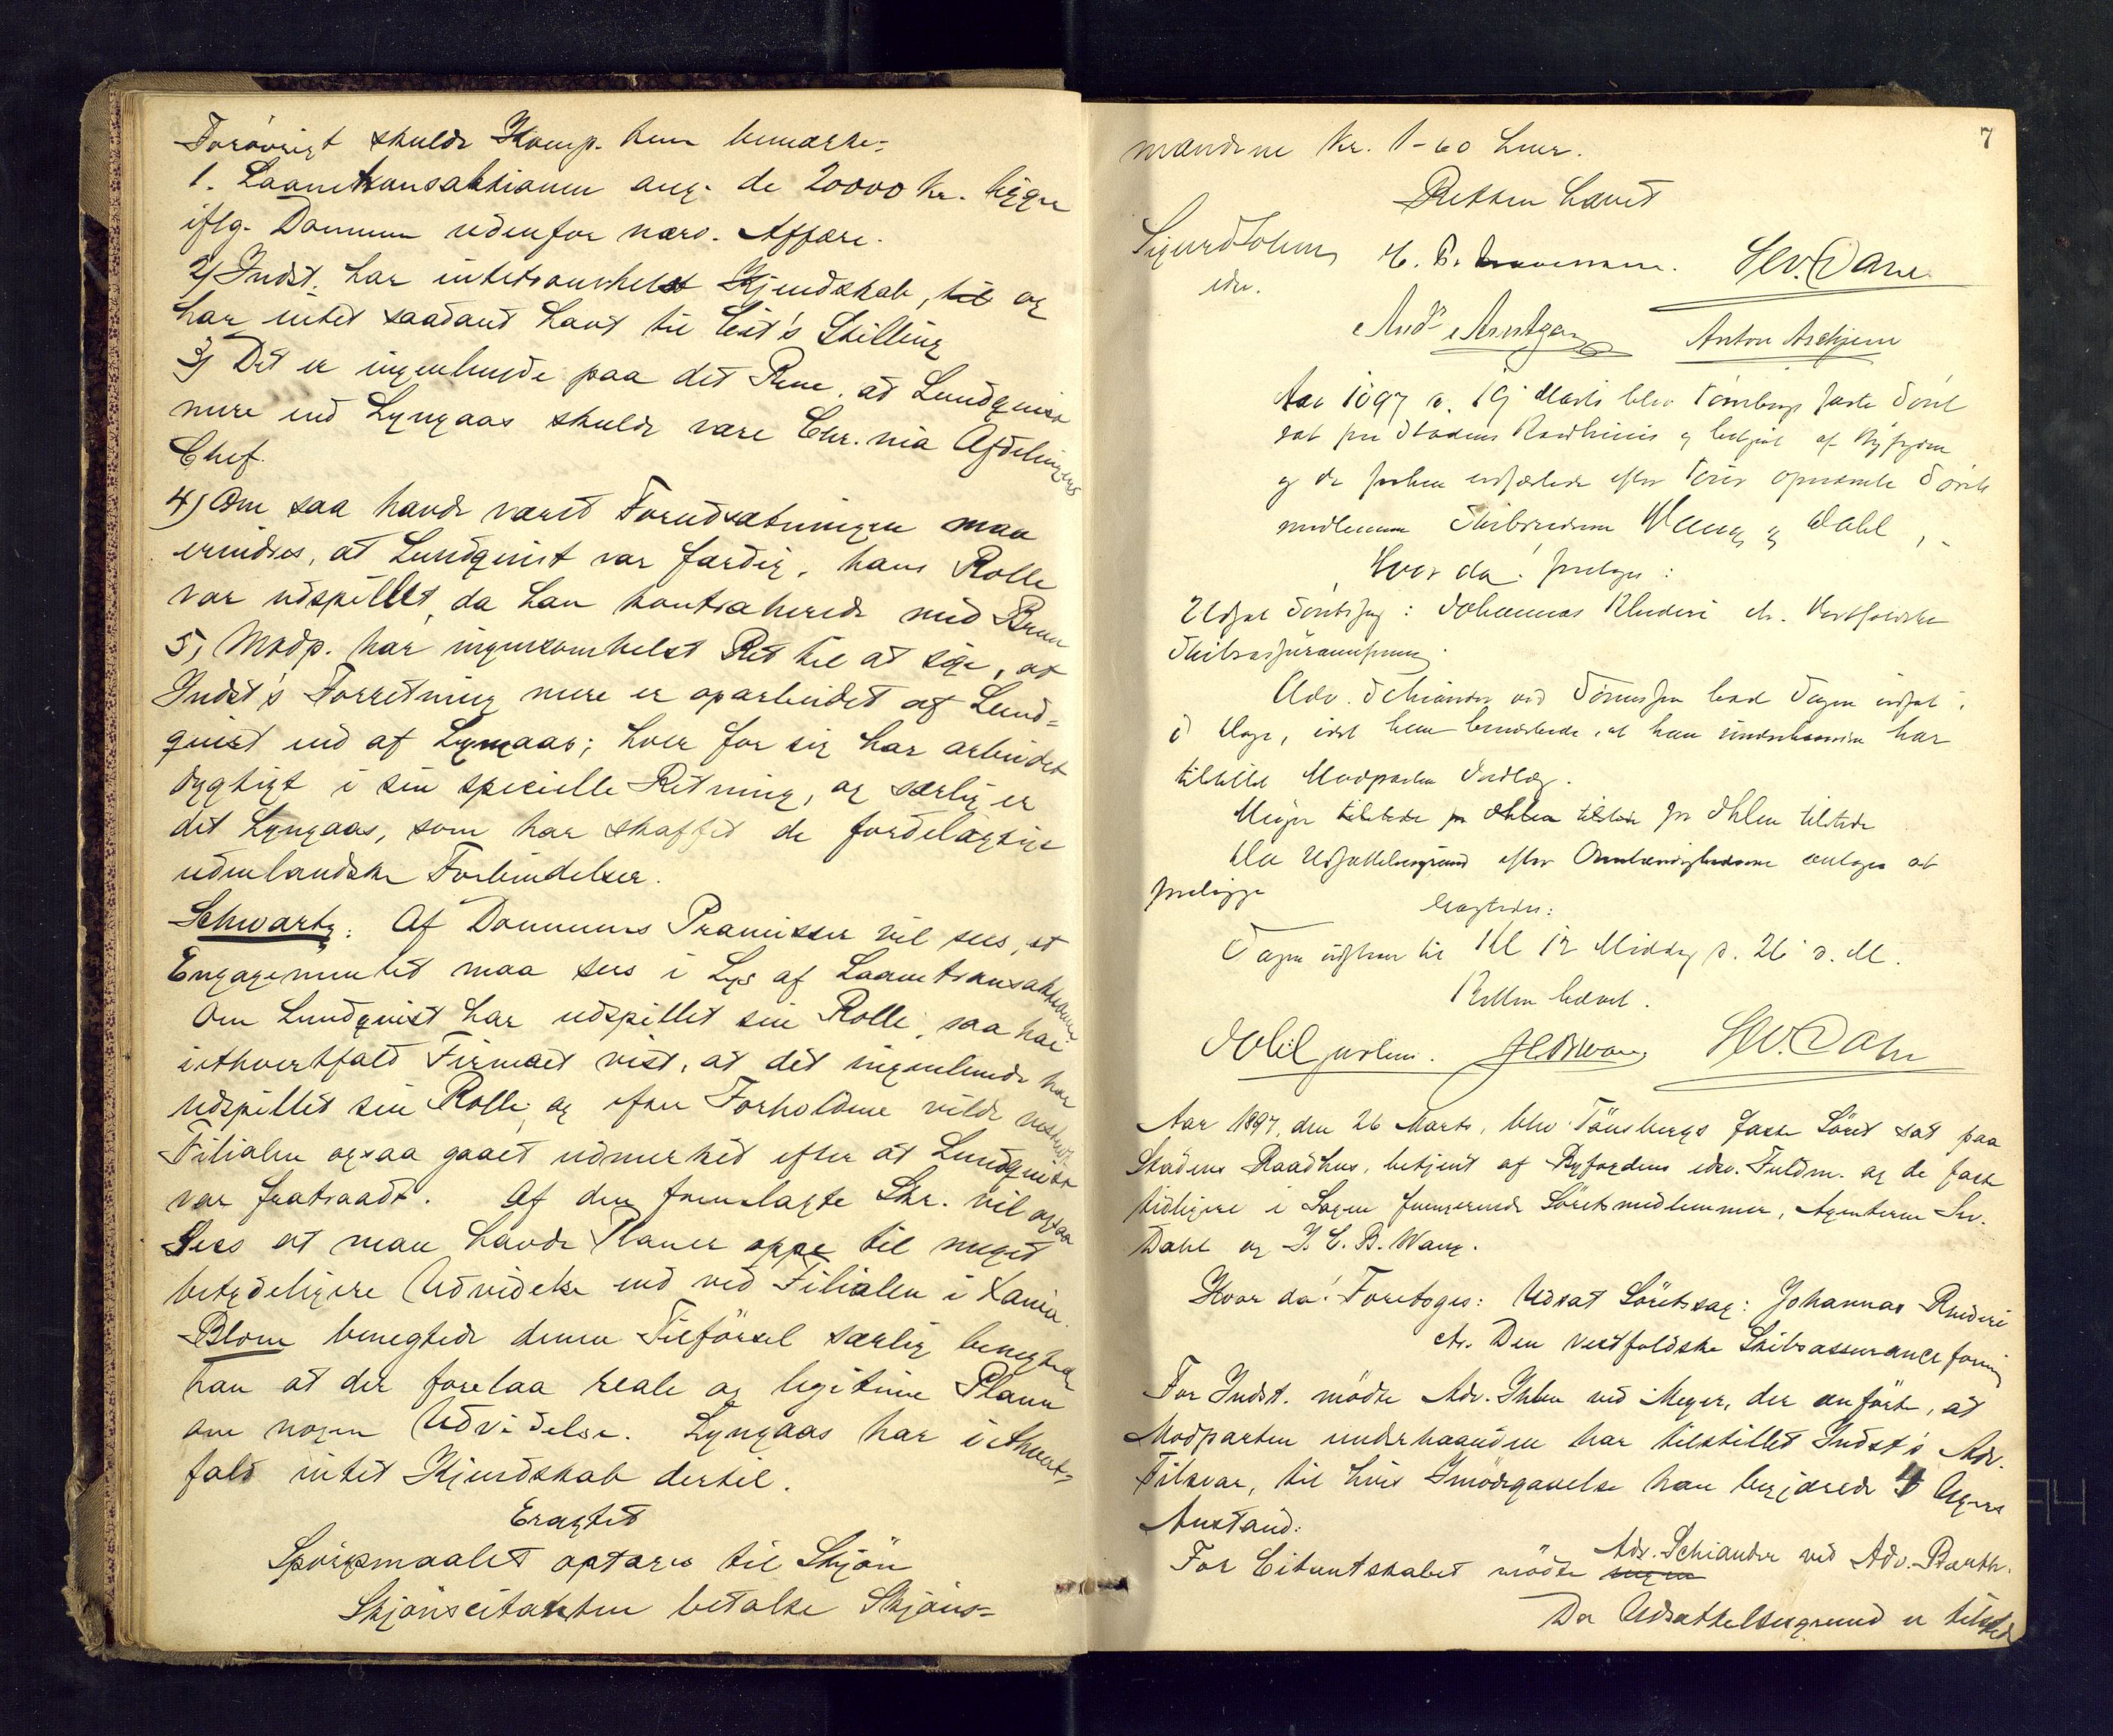 Forøvrigt skulde Komp. kun bemærke:
1. Laanetransaktionen ang. de 20000 Kr. ligger
iflg. Dommen udenfor nærv. Affære.
2) Indst. har intetsomhelst Kjendskab, til og
har intet saadant havt til Cit's Stilling
3) Det er ingenlunde paa det Rene, at Lundquist
mere end Lyngaas skulde være Chr.nia Afdelingens
Chef.
4) Om saa havde været Forudsætningen maa
erindres, at Lundquist var færdig, hans Rolle
var udspillet, da han kontraherede med Brun
5) Modp. har ingensomhelst Ret til at sige, at
Indst's Forretning mere er oparbeidet af Lund-
quist end af Lyngaas; hver for sig har arbeidet
dygtigt i sin specielle Retning, og særlig er
det Lyngaas, som har skaffet de fordelagtige
udenlandske Forbindelser.
Schwartz: Af Dommens Præmisser vil sees, at
Engagementet maa sees i Lys af Laanetransaktionen
Om Lundquist har udspillet sin Rolle, saa har
iethvertfald Firmaet vist, at det ingenlunde har
udspillet sin Rolle, og efter Forholdene vilde
Filialen ogsaa gaaet udmerket efter at Lundquist
var fratraadt. Af den fremlagte Skr. vil ogsaa
sees at man havde Planer oppe til meget
betydeligere Udvidelse end ved Filialen i Xania.
Blom benegtede denne Tilførsel særlig benegted
han at der forelaa reale og legitime Planer
om nogen Udvidelse. Lyngaas har iethvert-
fald intet Kjendskab dertil.
Eragtet
Spørgsmaalet optages til Skjøn
Skjønscitanten betalte Skjøns-
7
mændene Kr. 1-60 hver.
Retten hævet
Sigurd H. P. Sev. Dahl
edsv.
And. Arntzen Anton Aschjem
Aar 1897 d. 19 Marts blev Tønsbergs faste Søret
sat paa Stadens Raadhuus og betjent af Byfogden
og de forhen udfærdede efter Tour opnævnte Sørets
medlemmer Skibsrederne Wang og Dahl,
Hvor da! foretoges:
Udsat Søretssag: Johannas Rhederi ctr. Vestfoldske
Skibsassuranceforening.
Adv. Schiander ved Tønnessen bad Sagen udsat
8 Dage, idet han bemærkede, at han underhaanden har
tilstillet Modparten Indlæg.
Meyer tilstede for Ihlen tilstede for Ihlen tilstede
Da Udsættelsesgrund efter Omstændighederne antages at
foreligge
eragtedes:
Sagen udsættes til Kl 12 Middag d. 26 d. M.
Retten hævet.
Dahl JCBWang Sev. Dahl
Aar 1897, den 26 Marts, blev Tønsbergs faste Søret sat paa
Stadens Raadhus, betjent af Byfogdens edsv. Fuldm. og de faste
tidligere i Sagen fungerende Søretsmedlemmer, Agenterne Sev.
Dahl og J. C. B. Wang.
Hvor da! Foretoges: Udsat Søretssag: Johannas Rhederi
ctr. Den vestfoldske Skibsassuranceforening
For Indst. mødte Adv. Ihlen ved Meyer, der anførte, at
Modparten underhaanden har tilstillet Indst's Adv.
Tilsvar, til hvis Imødegaaelse han begjærede 4 Ugers
Anstand.
For Citantskabet mødte ingen Adv. Schiander ved Adv. Barth.
Da Udsættelsesgrund er tilstede